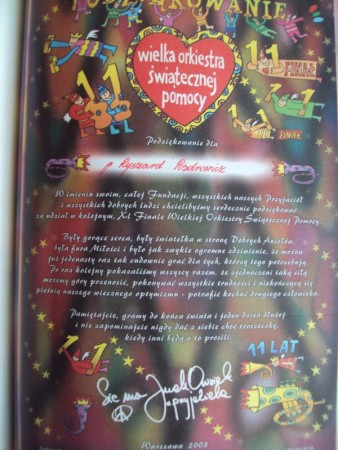 PODZIĘKOWANIE
wielka orkiestra
świątecznej
pomocy
11
FINAŁ
11
11
FINAŁ
Podziękowanie dla
p. Ryszard
W imieniu swoim, całej Fundacji, wszystkich naszych Przyjaciół
i wszystkich dobrych ludzi chcielibyśmy serdecznie podziękować
za udział w kolejnym, XI Finale Wielkiej Orkiestry Świątecznej Pomocy.
Były gorące serca, były światełka w stronę Dobrych Aniołów,
była fura Miłości i było jak zwykle ogromne zdziwienie, że można
już jedenasty raz tak cudownie grać dla tych, którzy tego potrzebują.
Po raz kolejny pokazaliśmy wszyscy razem, że zjednoczeni taką siłą
możemy góry przenosić, pokonywać wszystkie trudności i niekończącą się
pieśnią naszego wiecznego optymizmu - potrafić kochać drugiego człowieka.
Pamiętajcie, gramy do końca świata i jeden dzień dłużej
i nie zapominajcie nigdy dać z siebie choć troszeczkę,
kiedy inni będą o to prosili.
11
11 LAT
Sie ma
Jurek Owsiak
z przyjaciele
Warszawa 2003